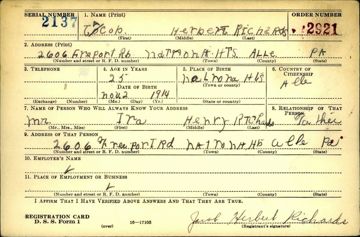 SERIAL NUMBER 1. NAME (Print) ORDER NUMBER
2137 Jacob Herbert Richards 2921
(First) (Middle) (Last)
2. ADDRESS (Print)
2606 Freeport Rd Natrona Hts. Alle. PA
(Number and street or R. F. D. number) (Town) (County) (State)
3. TELEPHONE 4. AGE IN YEARS 5. PLACE OF BIRTH 6. COUNTRY OF CITIZENSHIP
25 Natrona Hts
DATE OF BIRTH (Town or county)
Nov 2 1914
(Exchange) (Number) (Mo.) (Day) (Yr.) (State or country)
7. NAME OF PERSON WHO WILL ALWAYS KNOW YOUR ADDRESS 8. RELATIONSHIP OF THAT PERSON
Mr. Ira Henry Richards Father
(Mr., Mrs., Miss) (First) (Middle) (Last)
9. ADDRESS OF THAT PERSON
2606 Freeport Rd Natrona Hts Alle Pa
(Number and street or R. F. D. number) (Town) (County) (State)
10. EMPLOYER'S NAME
11. PLACE OF EMPLOYMENT OR BUSINESS
(Number and street or R. F. D. number) (Town) (County) (State)
I AFFIRM THAT I HAVE VERIFIED ABOVE ANSWERS AND THAT THEY ARE TRUE.
REGISTRATION CARD
D. S. S. Form 1 (over) 16—17105 Jacob Herbert Richards
(Registrant's signature)